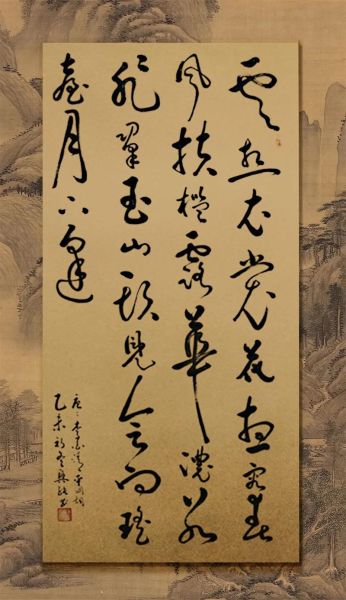 雲想衣裳花想容春
風拂檻露華濃若
非群玉山頭見會向瑤
臺月下逢
唐李白清平調
乙未初冬